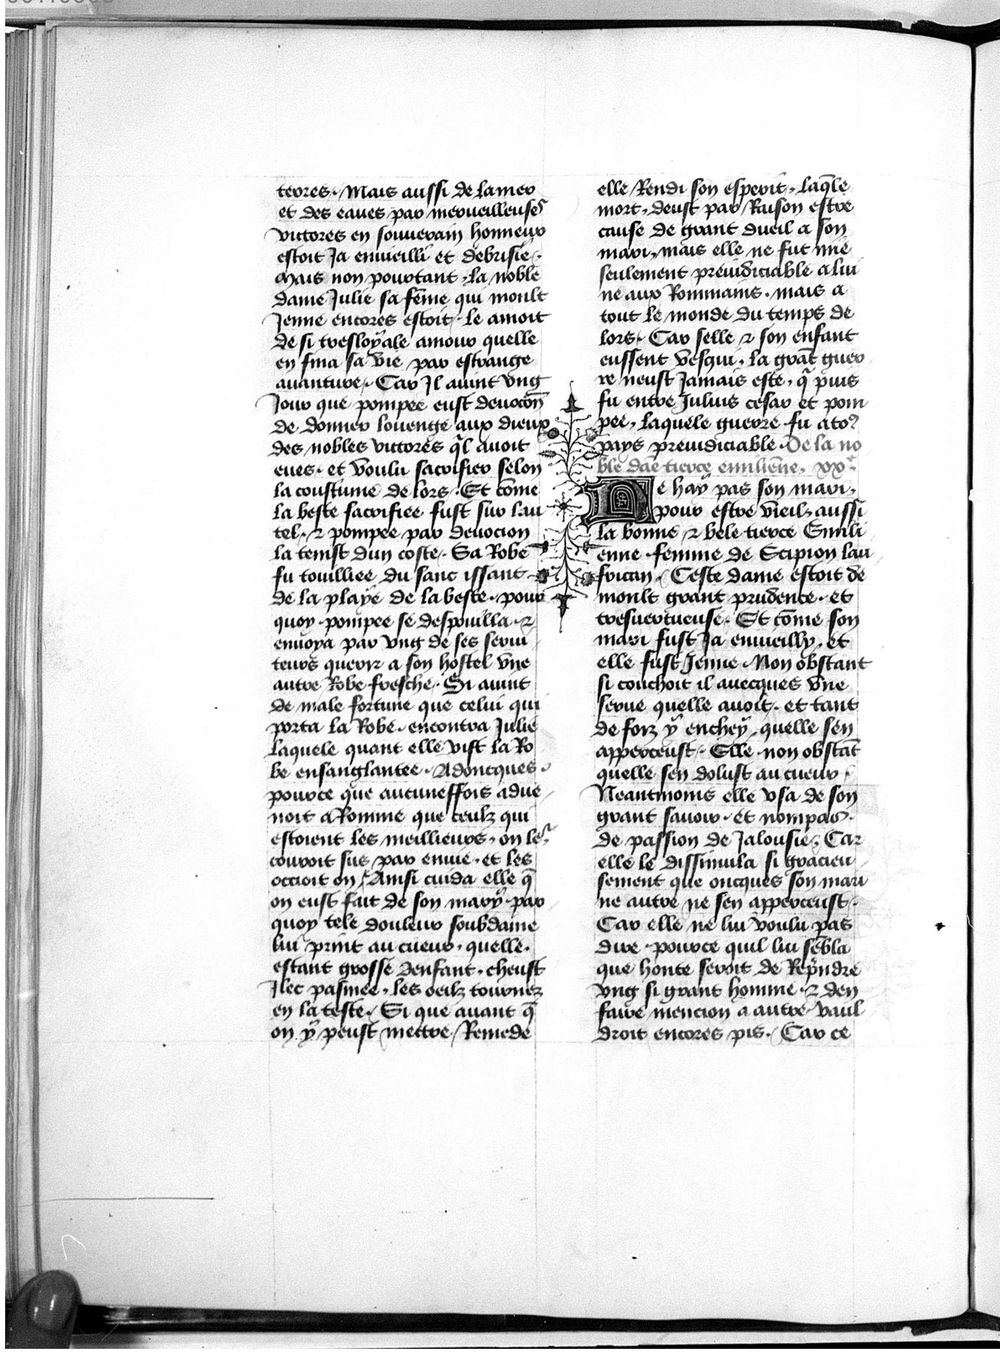 terres. Mais aussi de la mer
et des eaues par merueilleuses
victores en souuerain honneur
estoit Ja enuieilli et debrisie.
Mais non pourtant, la noble
dame Julie sa fēme qui moult
Jenne encores estoit. le amoit
de si tresloyale amour quelle
en fina sa vie par estrange
auanture. Car Il auint vng
Jour que pompee eust deuocōn
de donner louenge aux dieux
des nobles victores q̄l auoit
eues. et voulu sacrifier selon
la coustume de lors. Et cōme
la beste sacrifiee fust sur lau
tel. ⁊ pompee par deuocion
la tenist dun coste. Sa Robe
fu touilliee du sanc issant
de la playe de la beste. pour
quoy pompee se despouilla. ⁊
enuoya par vng de ses serui
teurs querir a son hostel vne
autre Robe fresche. Si auint
de male fortune que celui qui
porta la Robe. encontra Julie
laquele quant elle vist la Ro
be ensanglantee. Adoncques.
pource que aucuneffois adue
noit a Romme que ceulz qui
estoient les meillieurs. on les
couroit sus par enuie. et les
occioit on. Ainsi cuida elle q̄
on eust fait de son mary. par
quoy tele douleur soubdaine
lui print au cueur. quelle.
estant grosse denfant. cheust
Jlec pasmee. les oeilz tournez
en la teste. Si que auant q̄
on y peust mettre Remede
elle Rendi son esperit. laq̄le
mort, deust par Raison estre
cause de grant dueil a son
mari, mais elle ne fut mie
seulement preiudiciable a lui
ne aux Rommains. mais a
tout le monde du temps de
lors. Car selle ⁊ son enfant
eussent vesqui. la grāt guer
re neust Jamais este, q̄ puis
fu entre Julius cesar et pom
pee, laquele guerre fu a to9
pays preiudiciable. De la no
ble dāe tierce emiliēne. xx.
Ne hay pas son mari,
pour estre vieil, aussi
la bonne ⁊ bele tierce Emili
enne femme de Scipion lau
frican. Ceste dame estoit de
moult grant prudence. et
tresuertueuse. Et cōme son
mari fust Ja enuieilly. et
elle fust Jenne. Non obstant
si couchoit il auecques vne
serue quelle auoit. et tant
de foiz y enchey, quelle sen
apperceust. Elle non obstāt
quelle sen dolust au cueur.
Neantmoins elle vsa de son
grant sauoir. et nompas.
de passion de Jalousie. Car
elle le dissimula si gracieu
sement que oncques son mari
ne autre ne sen apperceust.
Car elle ne lui voulu pas
dire. pource quil lui sēbla
que honte seroit de Rep̄ndre
vng si grant homme. ⁊ den
faire mencion a autre. vaul
droit encores pis. Car ce